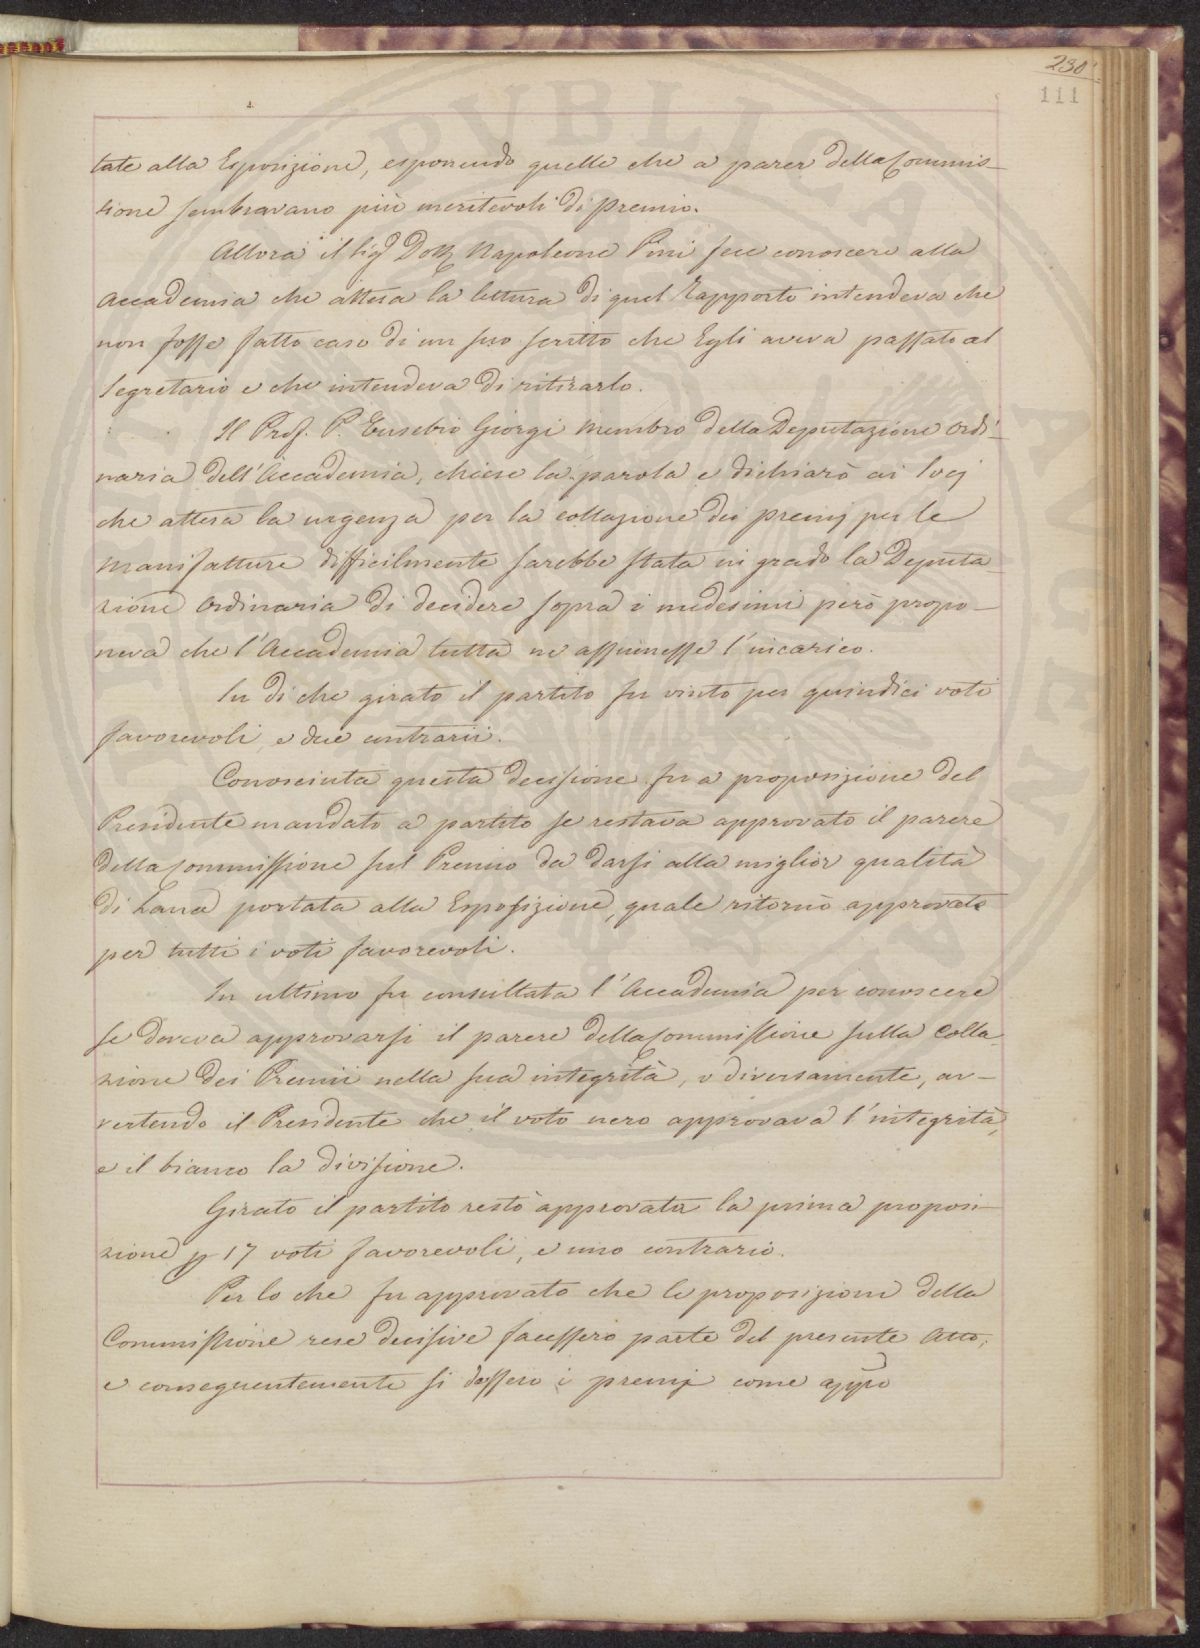 230
111
tate alla Esposizione, esponendo quelle che a parer della Commis-
sione sembravano più meritevoli di premio.
Allora il Sig.r Dott. Napoleone Pini fece conoscere alla
Accademia che attesa la lettura di quel Rapporto intendeva che
non fosse fatto caso di un suo scritto che Egli aveva passato al
Segretario e che intendeva di ritirarlo.
Il Prof. P. Eusebio Giorgi membro della Deputazione Ordi-
naria dell'Accademia, chiese la parola e dichiarò ai Socj
che attesa la urgenza per la collazione dei premj per le
manifatture difficilmente sarebbe stata in grado la Deputa-
zione Ordinaria di decidere sopra i medesimi però propo-
neva che l'Accademia tutta ne assumesse l'incarico.
In di che girato il partito fu vinto per quindici voti
favorevoli e due contrarii.
Conosciuta questa decisione fu a proposizione del
Presidente mandato a partito se restava approvato il parere
della Commissione sul Premio da darsi alla miglior qualità
di Lana portata alla Esposizione, quale ritornò approvato
per tutti i voti favorevoli.
In ultimo fu consultata l'Accademia per conoscere
se doveva approvarsi il parere della Commissione sulla Colla
zione dei Premii nella sua integrità, o diversamente, av-
vertendo il Presidente che il voto nero approvava l'integrità,
e il bianco la divisione.
Girato il partito restò approvata la prima proposi-
zione p 17 voti favorevoli, e uno contrario.
Per lo che fu approvato che le proposizioni della
Commissione rese decisive facessero parte del presente Atto,
e conseguentemente si dassero i premj come appo
PVBLICA